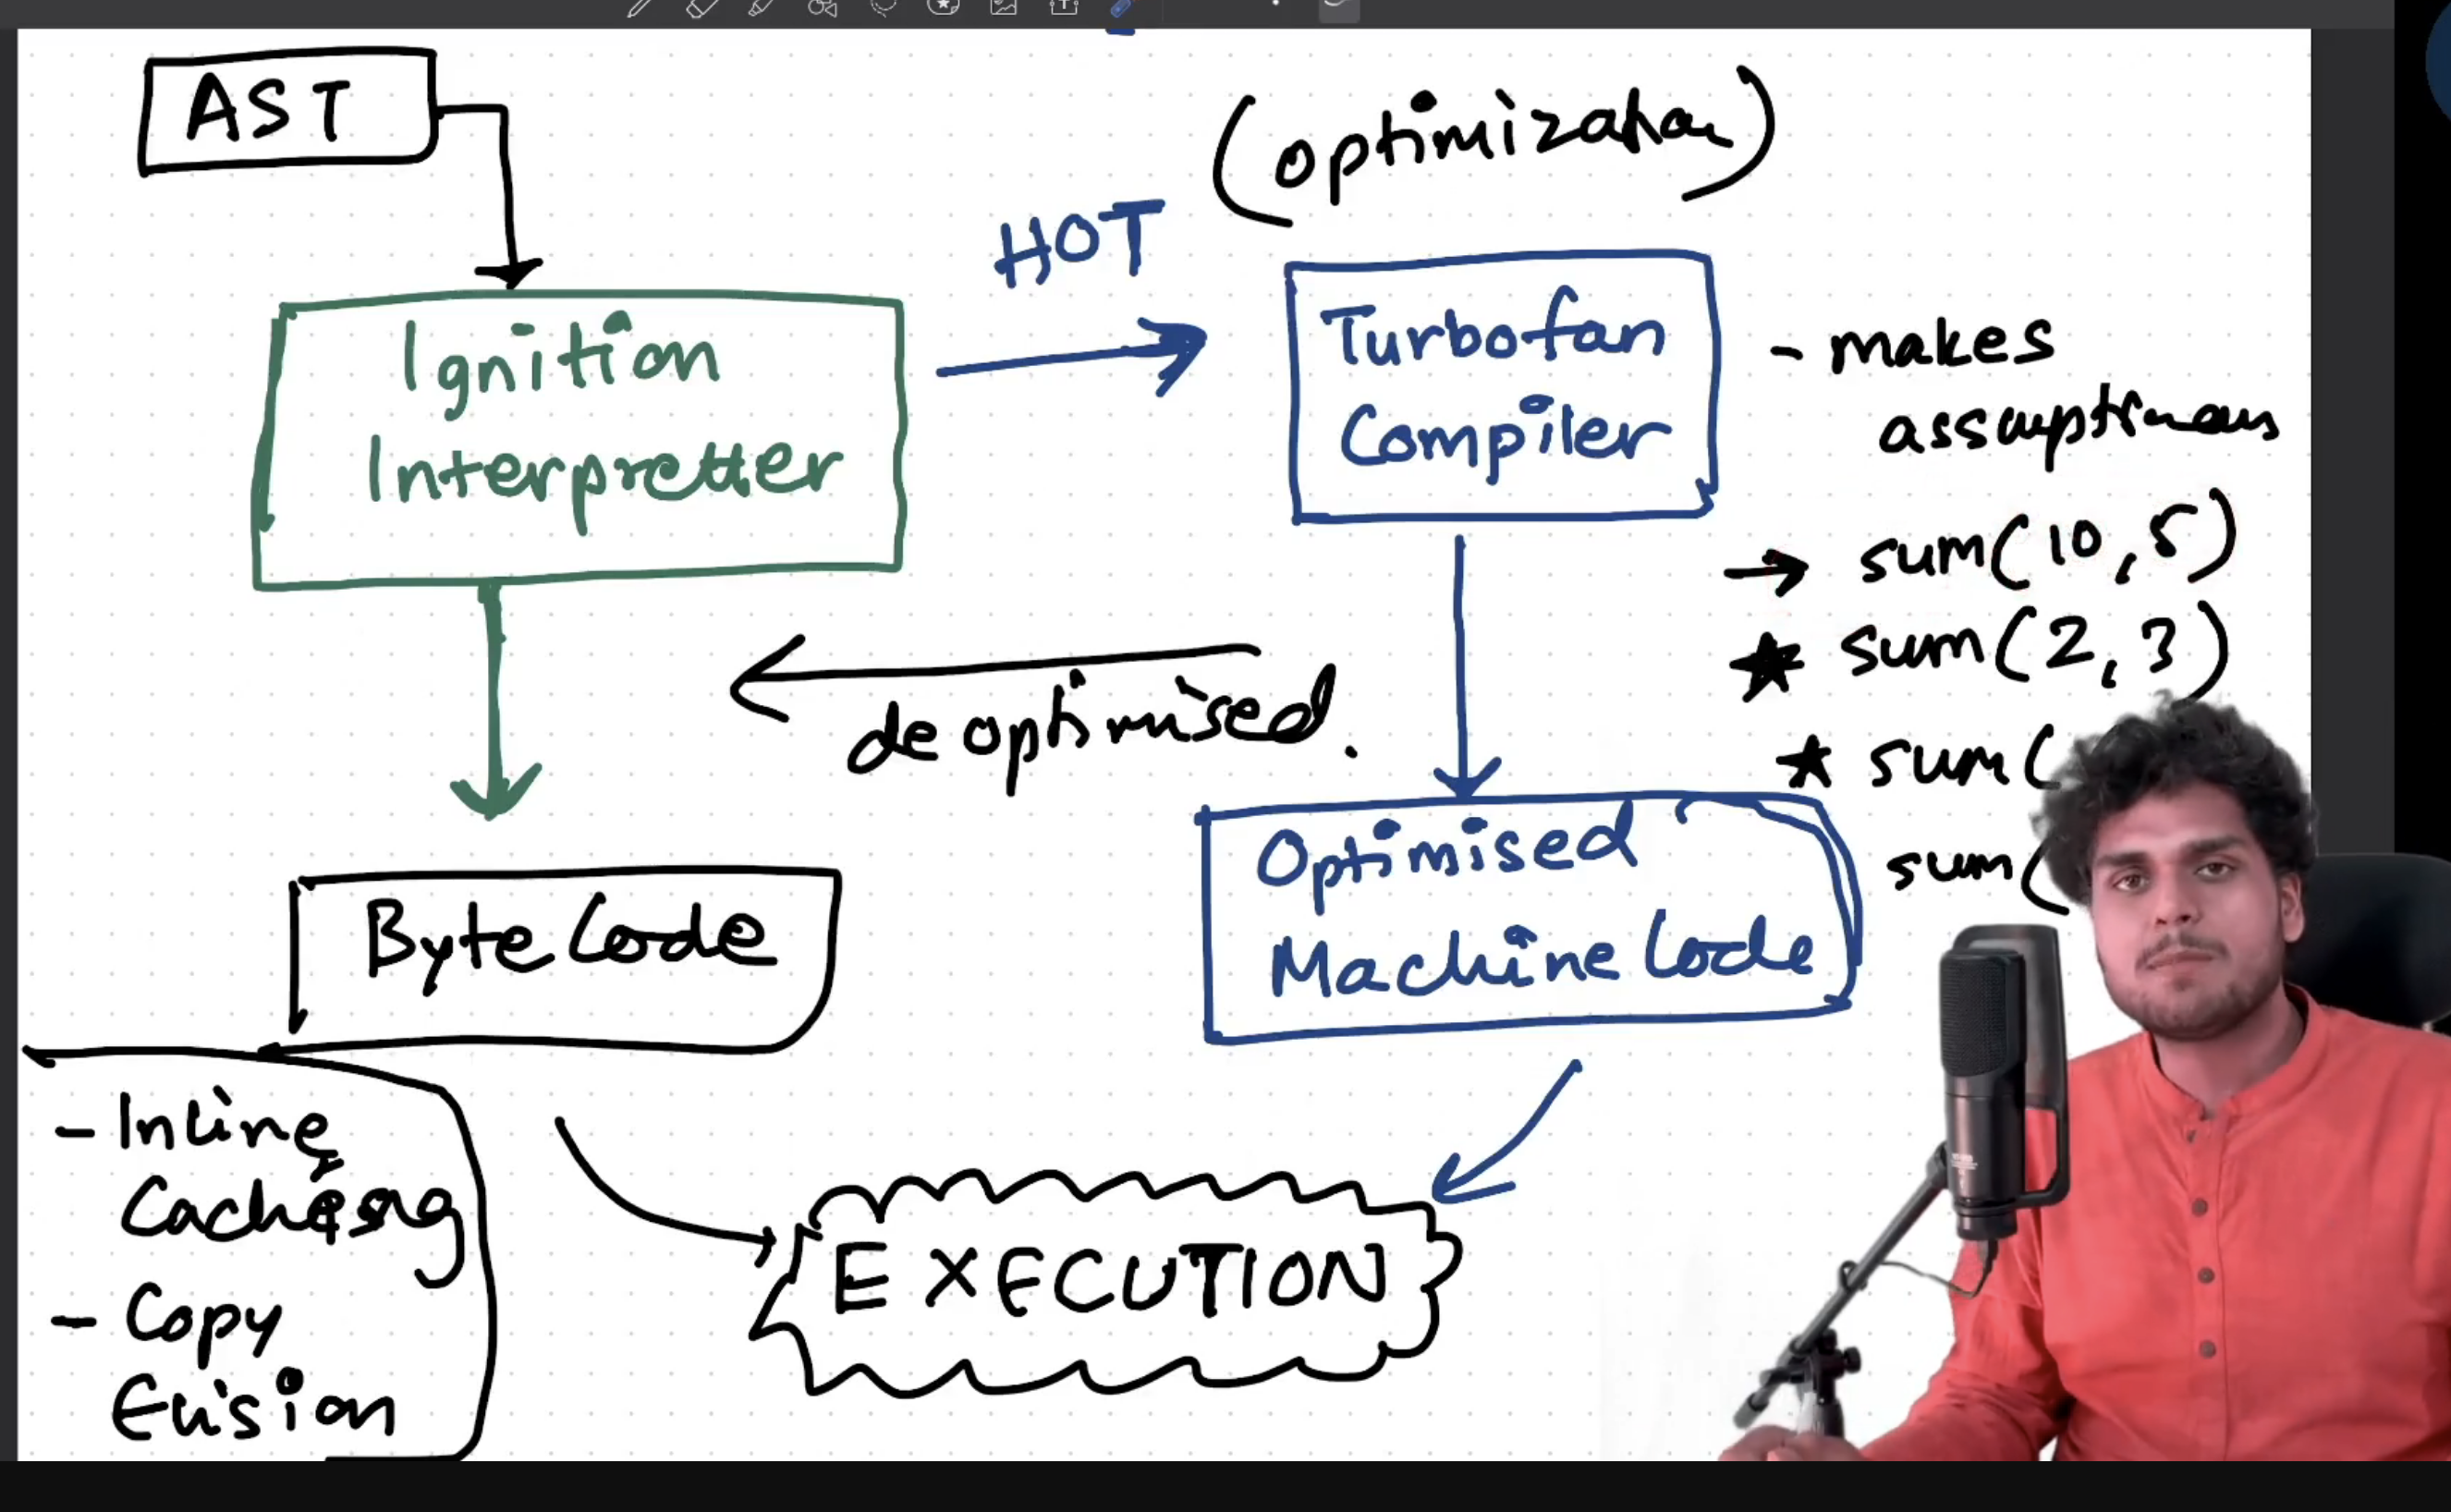 AST
(optimization)
HOT
Ignition
Interpretter
Turbofan
Compiler
- makes
assumptions
→ sum(10,5)
★ sum(2,3)
★ sum(
sum(
de optimised.
Optimised
Machine Code
Byte Code
- Inline
Caching
- Copy
Elision
EXECUTION